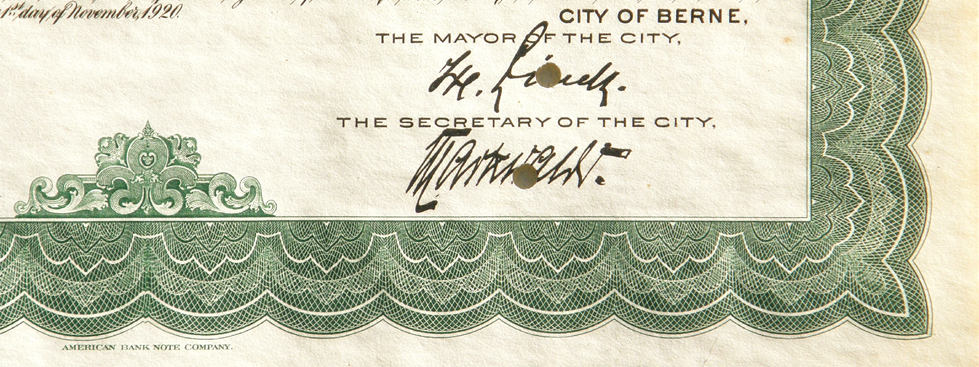 1st day of November, 1920.
CITY OF BERNE,
THE MAYOR OF THE CITY,
THE SECRETARY OF THE CITY,
AMERICAN BANK NOTE COMPANY.